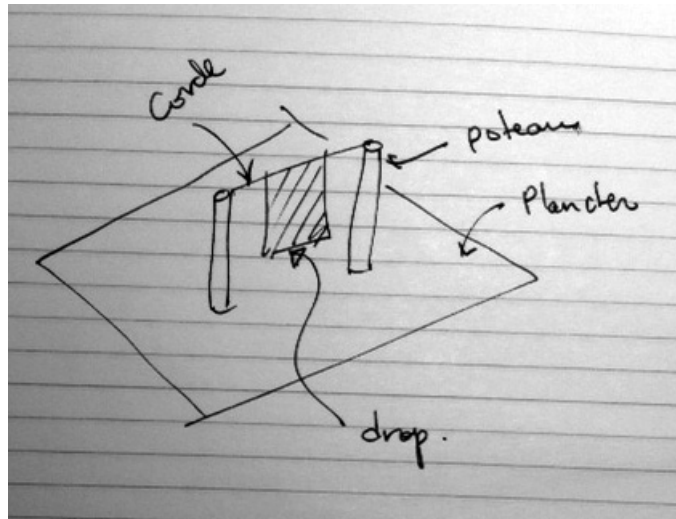 Corde
poteau
Plancher
drap.